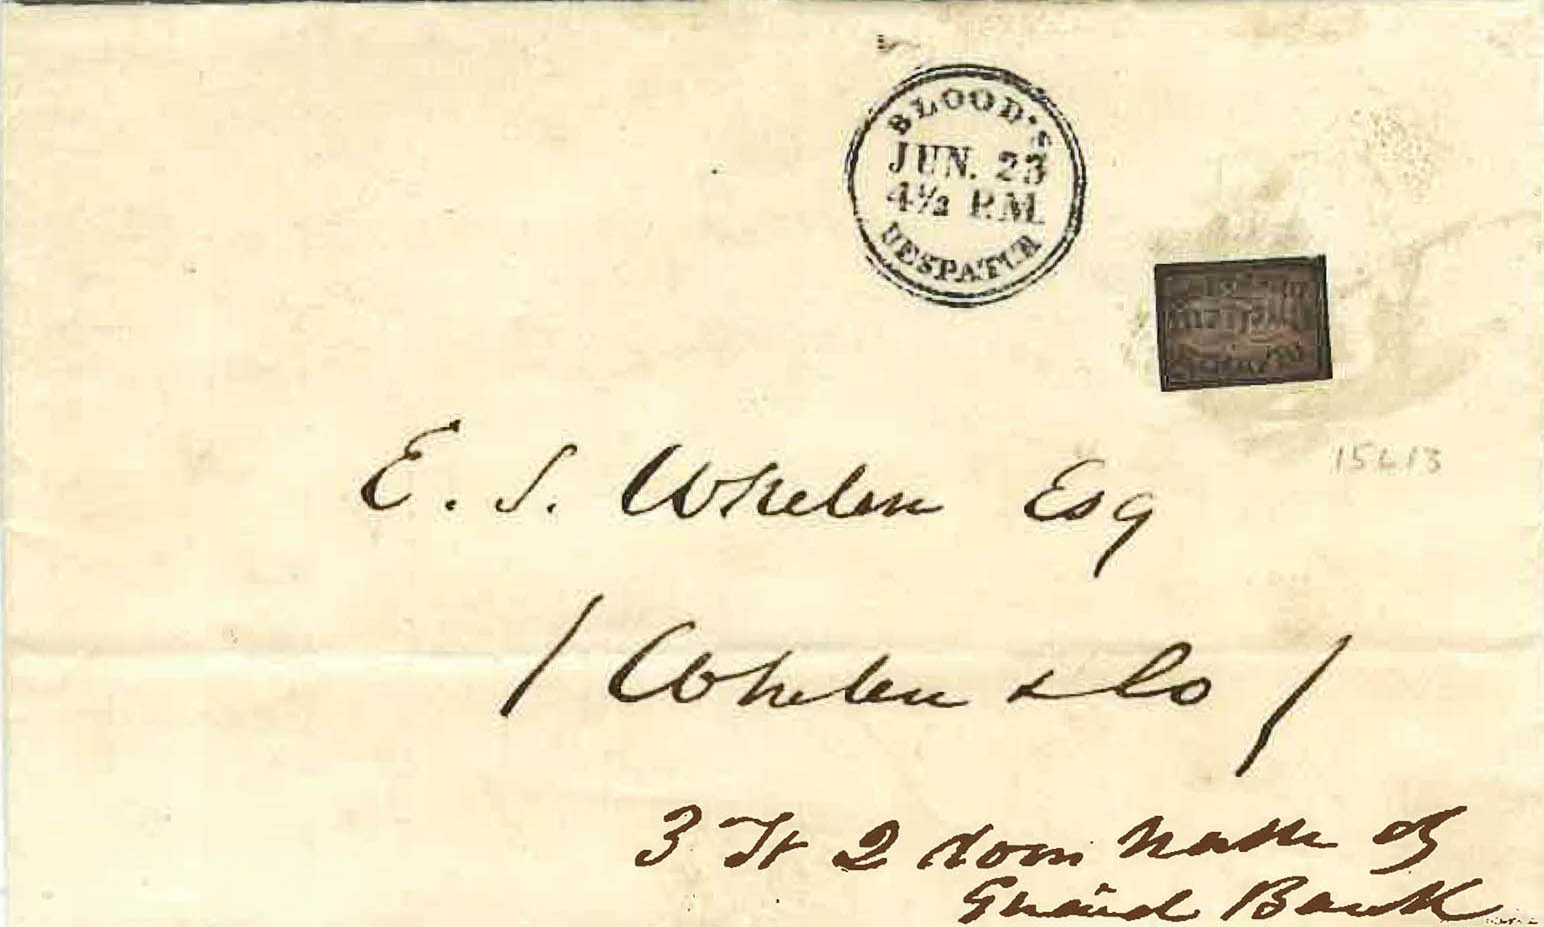 BLOOD'S
JUN. 23
4½ P.M.
DESPATCH
15L13
E. S. Whelen Esq
/ Whelen & Co /
3 St 2 doors North of
Girard Bank